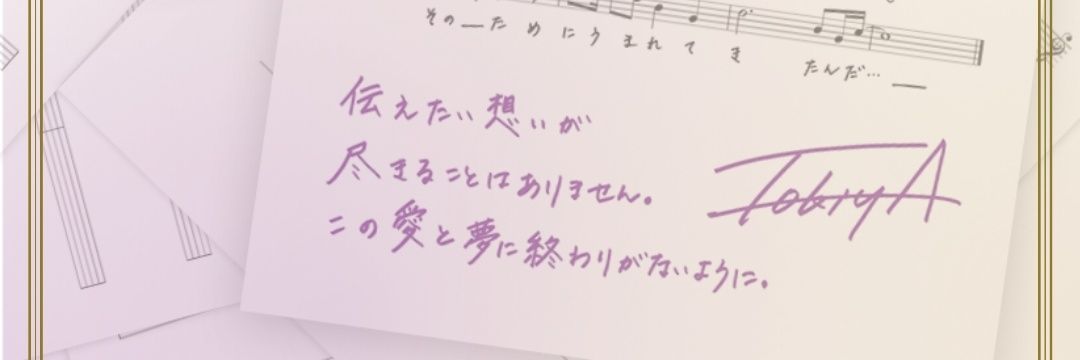 その―ために うまれて き たんだ… ―
伝えたい想いが
尽きることはありません。
この愛と夢に終わりがないように。
TobiyA